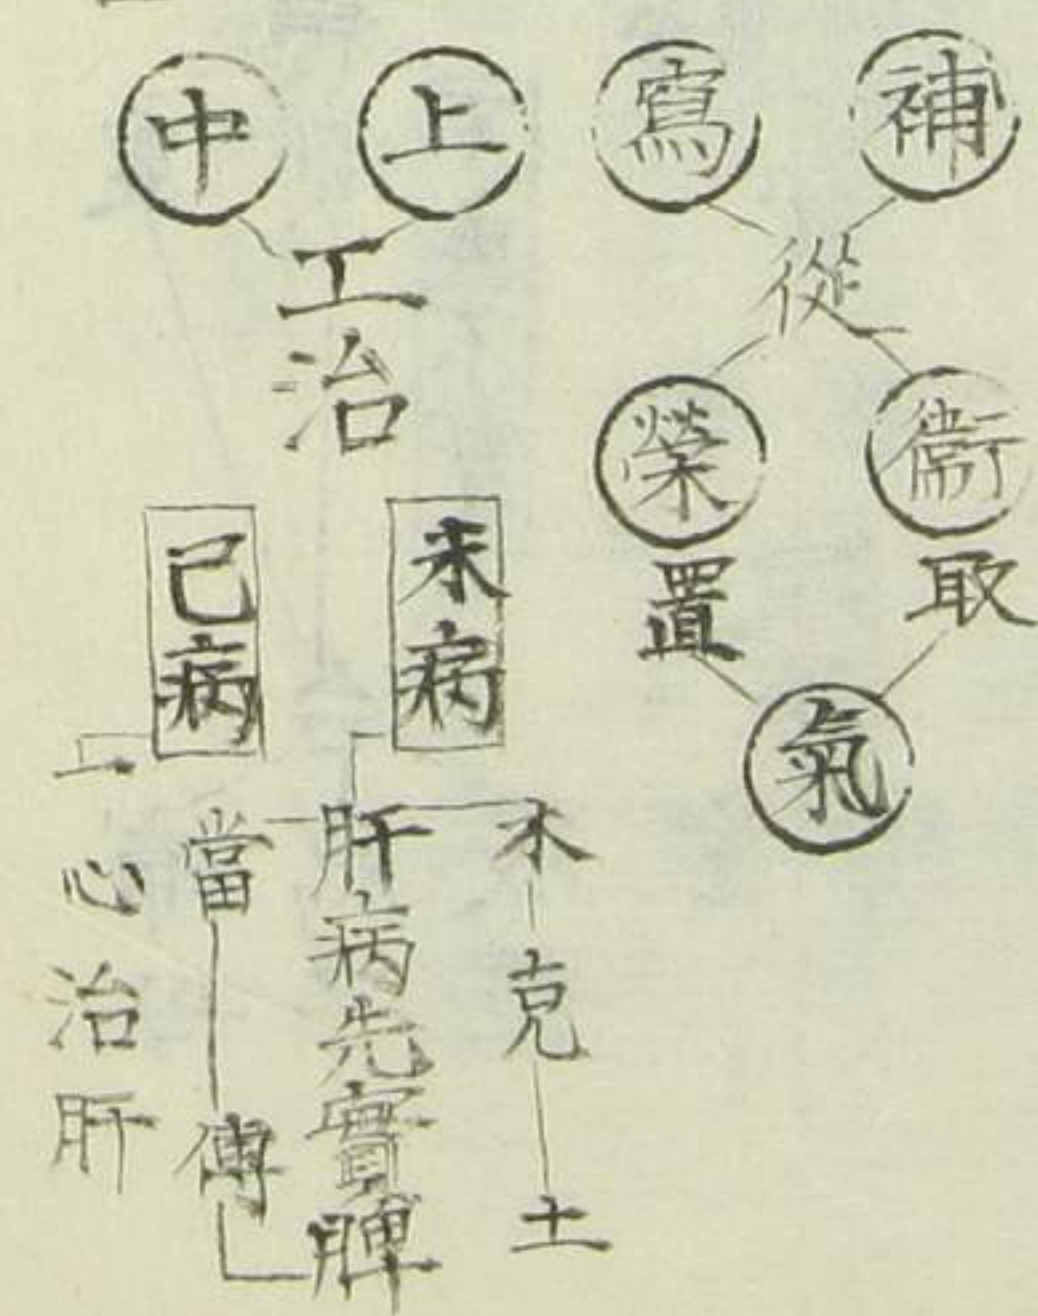 補
寫
從
衛
榮
取
置
氣
上
中
工治
未病
已病
木克土
肝病先實脾
當傳
一心治肝